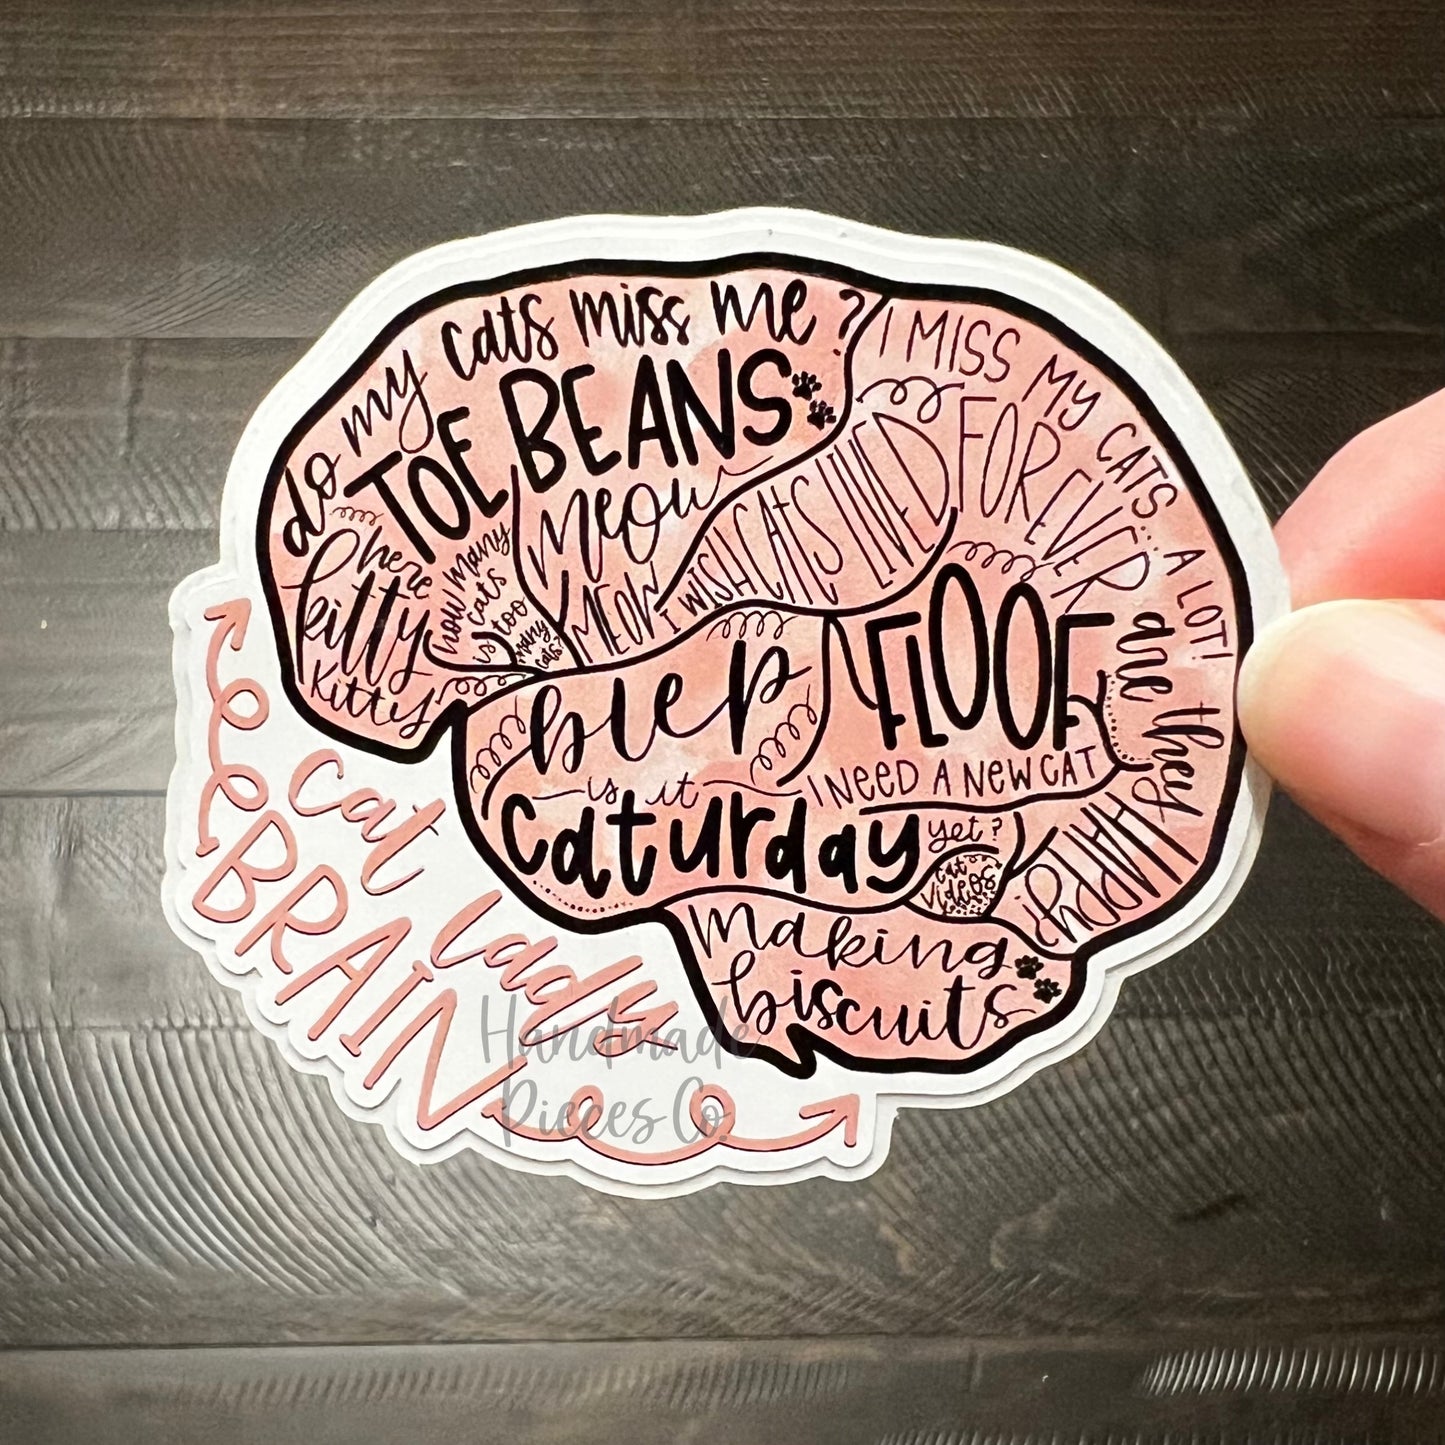 do my cats miss me?
TOE BEANS
here
kitty
kitty
how many
cats
is too
many
cats?
meow
MEOW
I WISH CATS LIVED
FOREVER
I MISS MY CATS... A LOT!
are they
HAPPY?
blep
FLOOF
is it
caturday
I NEED A NEW CAT
yet?
cat
videos
making
biscuits
cat lady
BRAIN
Handmade
Pieces Co.